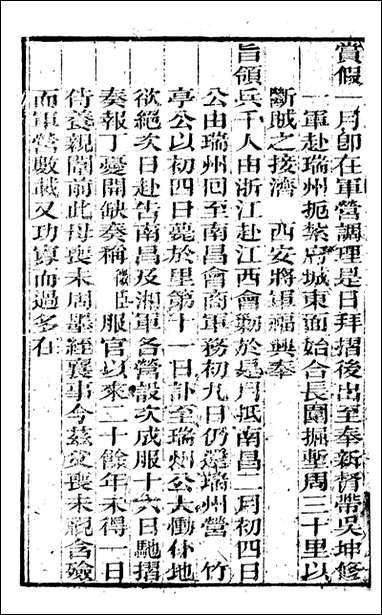 賞假一月卽在軍營調理是日拜摺後出至奉新督帶吳坤修
一軍赴瑞州扼紮府城東面始合長圍掘塹周三十里以
斷賊之接濟　西安將軍福興奉
旨領兵千人由浙江赴江西會勦於是月抵南昌二月初四日
公由瑞州回至南昌會商軍務初九日仍還瑞州營　竹
亭公以初四日薨於里第十一日訃至瑞州公大慟仆地
欲絕次日赴告南昌及湘軍各營設次成服十六日馳摺
奏報丁憂開缺奏稱微臣服官以來二十餘年未得一日
侍養親闈前此母喪未周墨絰襄事今茲父喪未視含殮
而軍營數載又功寡而過多在